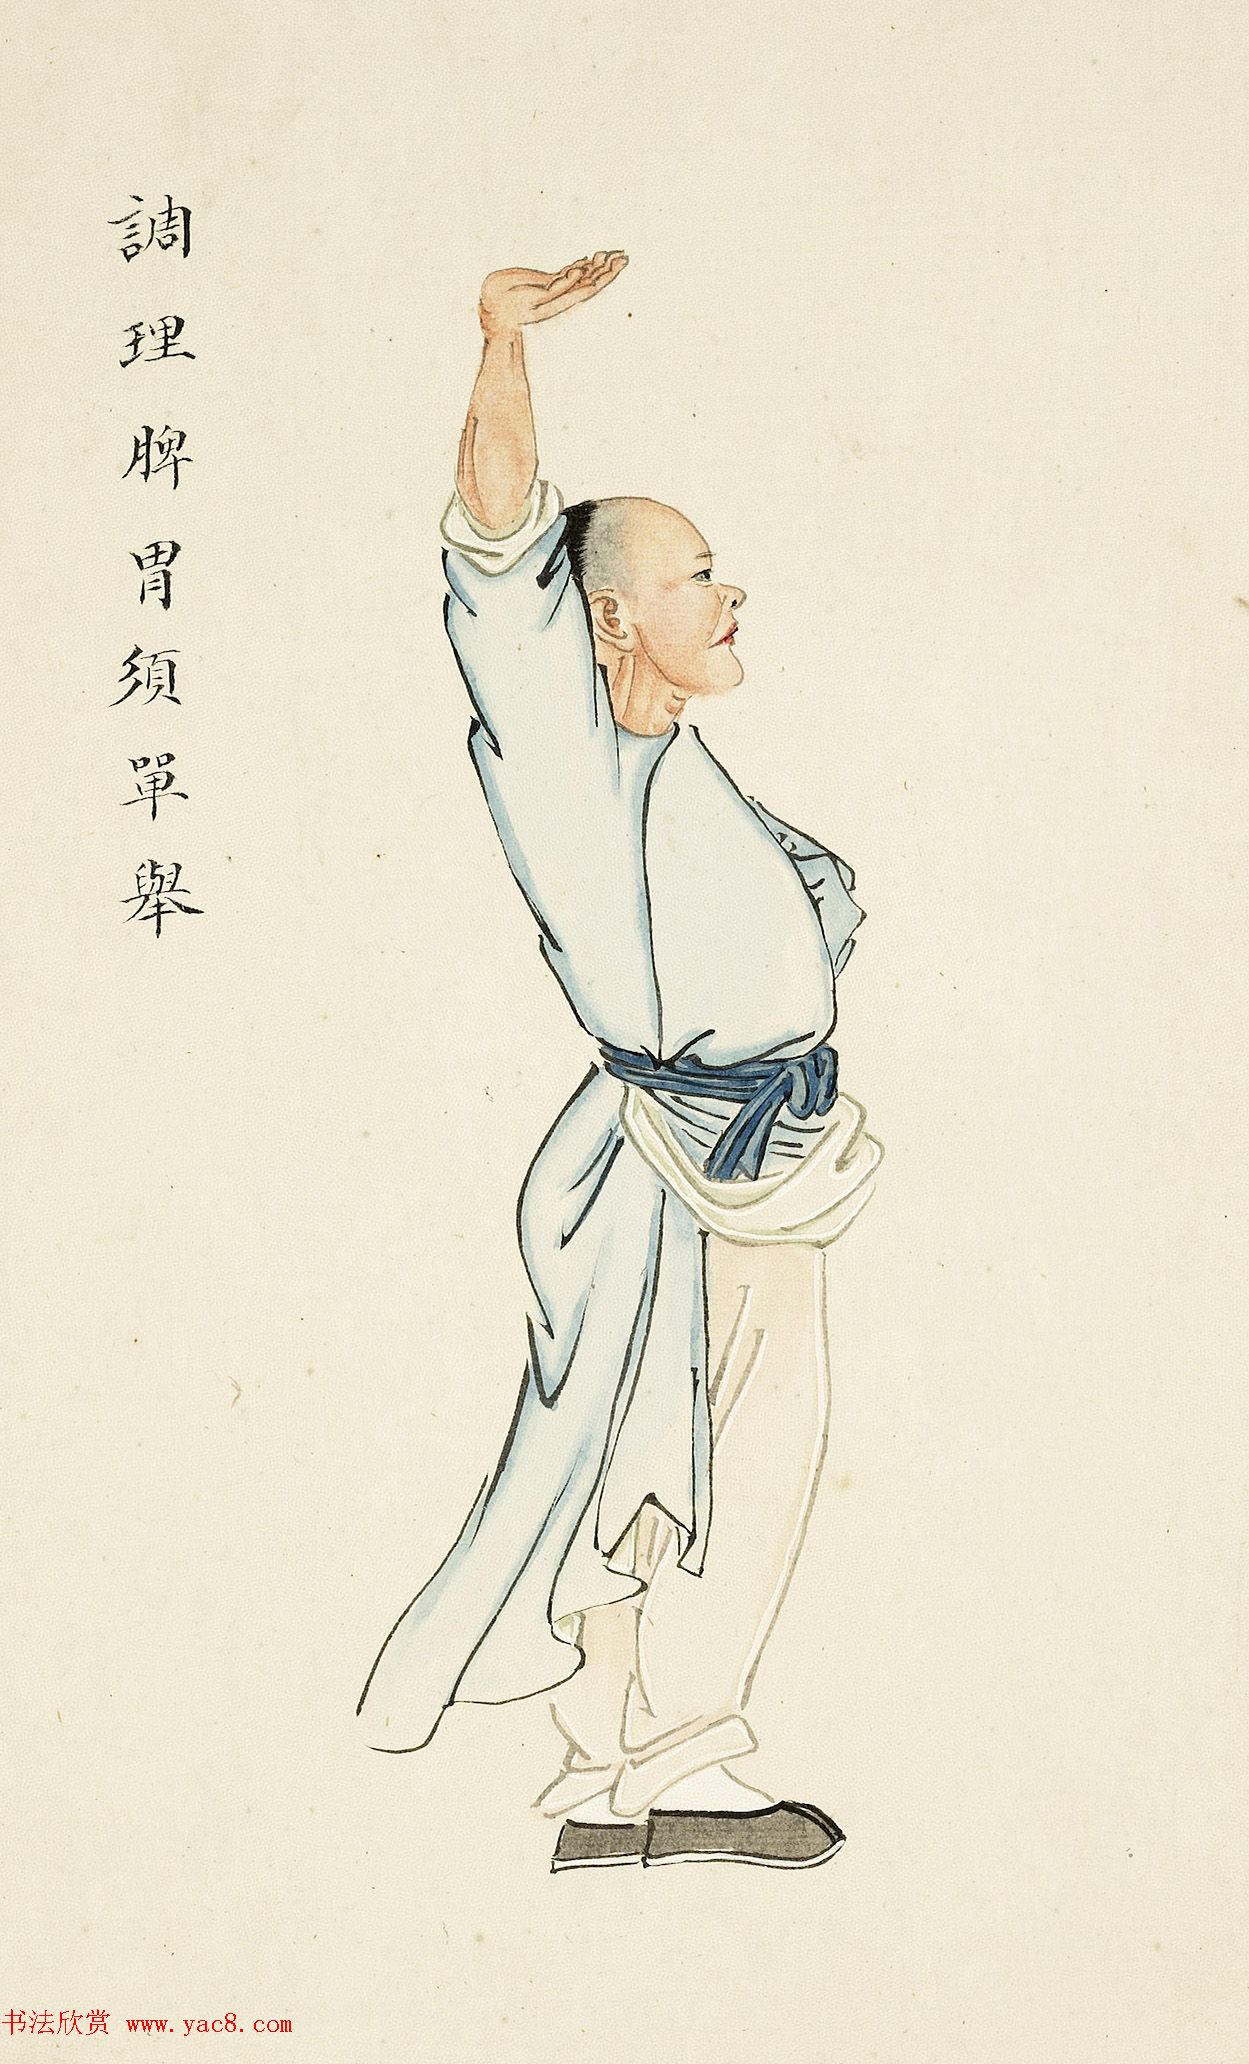 調理脾胃須單舉
书法欣赏 www.yac8.com